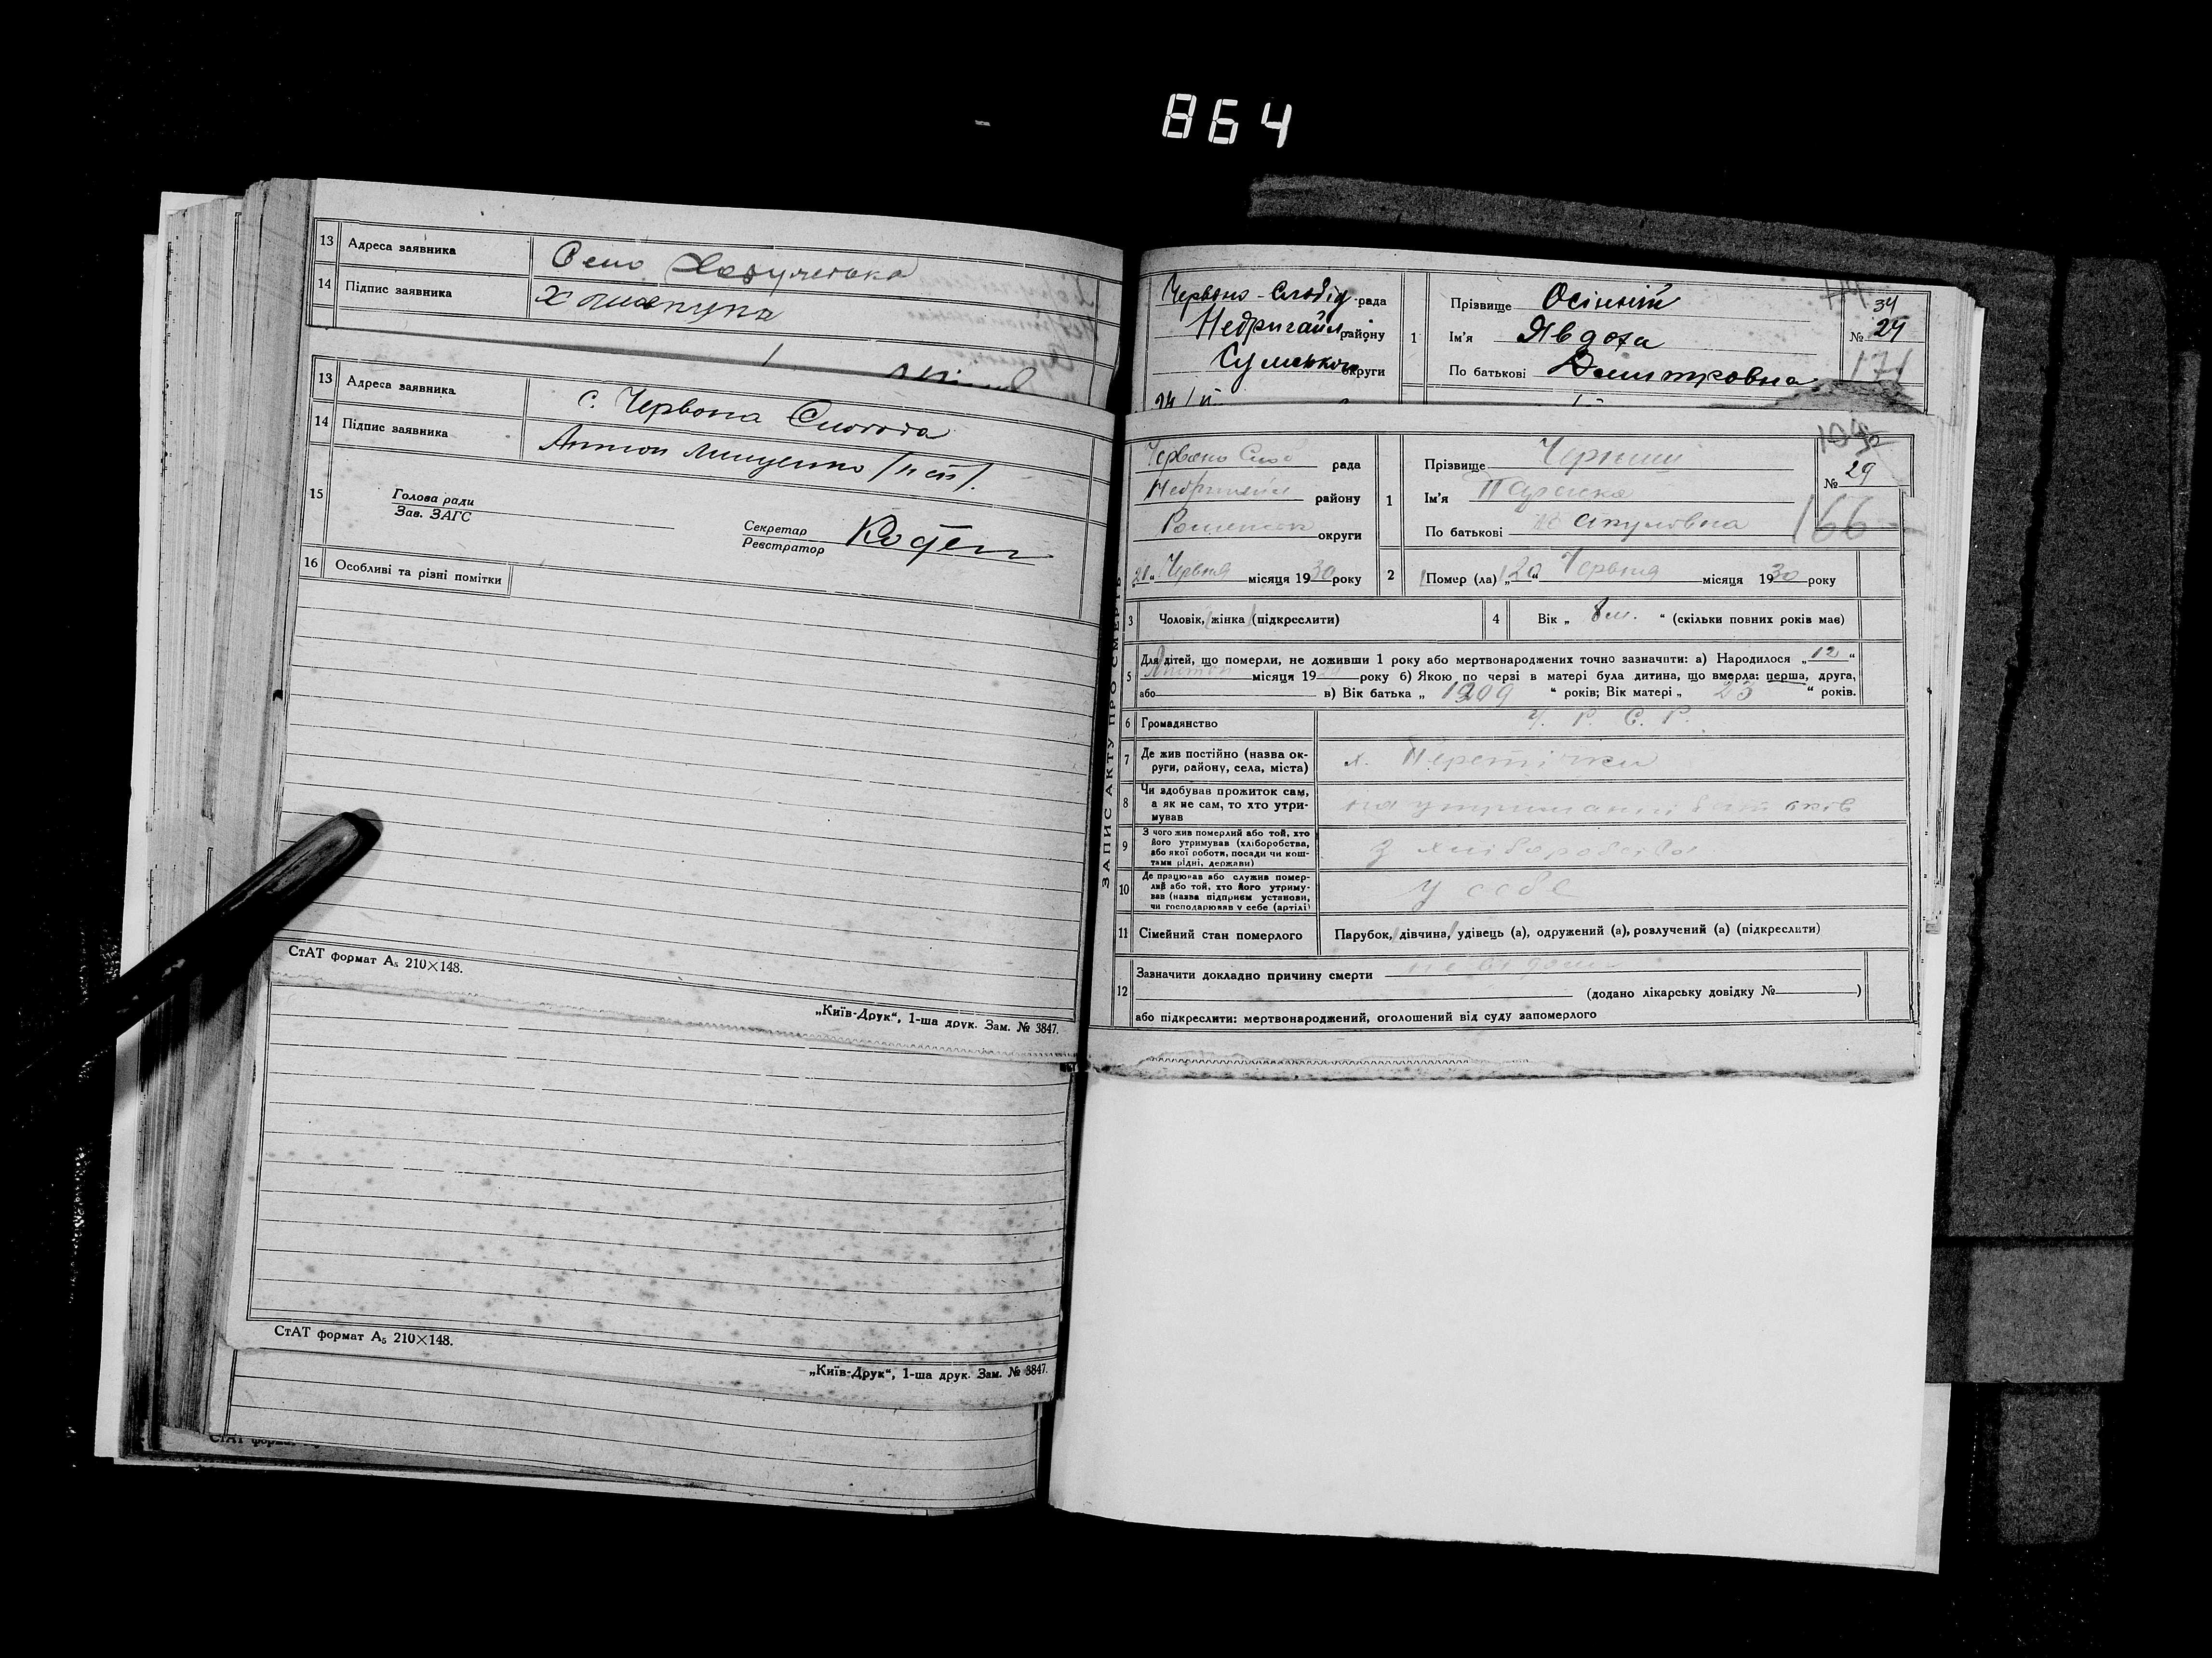 864
13 Адреса заявника Село
14 Підпис заявника
13 Адреса заявника с. Червона Слобода
14 Підпис заявника Антон Мищенко
15 Голова ради
Зав. ЗАГС
Секретар
Реєстратор
16 Особливі та різні помітки
СтАТ формат А₅ 210×148.
„Київ-Друк“, 1-ша друк. Зам. № 3847.
СтАТ формат А₅ 210×148.
„Київ-Друк“, 1-ша друк. Зам. № 3847.
СтАТ
Червоно-Слобід рада
Недригайл. району
Сумської округи
1 Прізвище Осінній
Ім'я Явдоха
По батькові Дмитровна
34
№ 24
171
ЗАПИС АКТУ ПРО СМЕРТЬ
Червоно Слоб рада
Недригайл району
Роменськ округи
21 „ Червня місяця 1930 року
1 Прізвище Черниш
Ім'я Параска
По батькові
№ 29
166
2 Помер (ла) „20“ Червня місяця 1930 року
3 Чоловік, жінка (підкреслити)
4 Вік „ 8 м. “ (скільки повних років має)
5 Для дітей, що померли, не доживши 1 року або мертвонароджених точно зазначити: а) Народилося „12“
місяця 19 року б) Якою по черзі в матері була дитина, що вмерла: перша, друга,
або в) Вік батька „ 1909 “ років; Вік матері „ 23 “ років.
6 Громадянство У. Р. С. Р.
7 Де жив постійно (назва округи, району, села, міста) х. Перетічки
8 Чи здобував прожиток сам, а як не сам, то хто утримував на утриманні батьків
9 З чого жив померлий або той, хто його утримував (хліборобства, або якої роботи, посади чи коштами рідні, держави) З хліборобства
10 Де працював або служив померлий або той, хто його утримував (назва підприєм установи, чи господарював у себе (артілі) у себе
11 Сімейний стан померлого Парубок, дівчина, удівець (а), одружений (а), розлучений (а) (підкреслити)
12 Зазначити докладно причину смерти не відома
(додано лікарську довідку № )
або підкреслити: мертвонароджений, оголошений від суду запомерлого